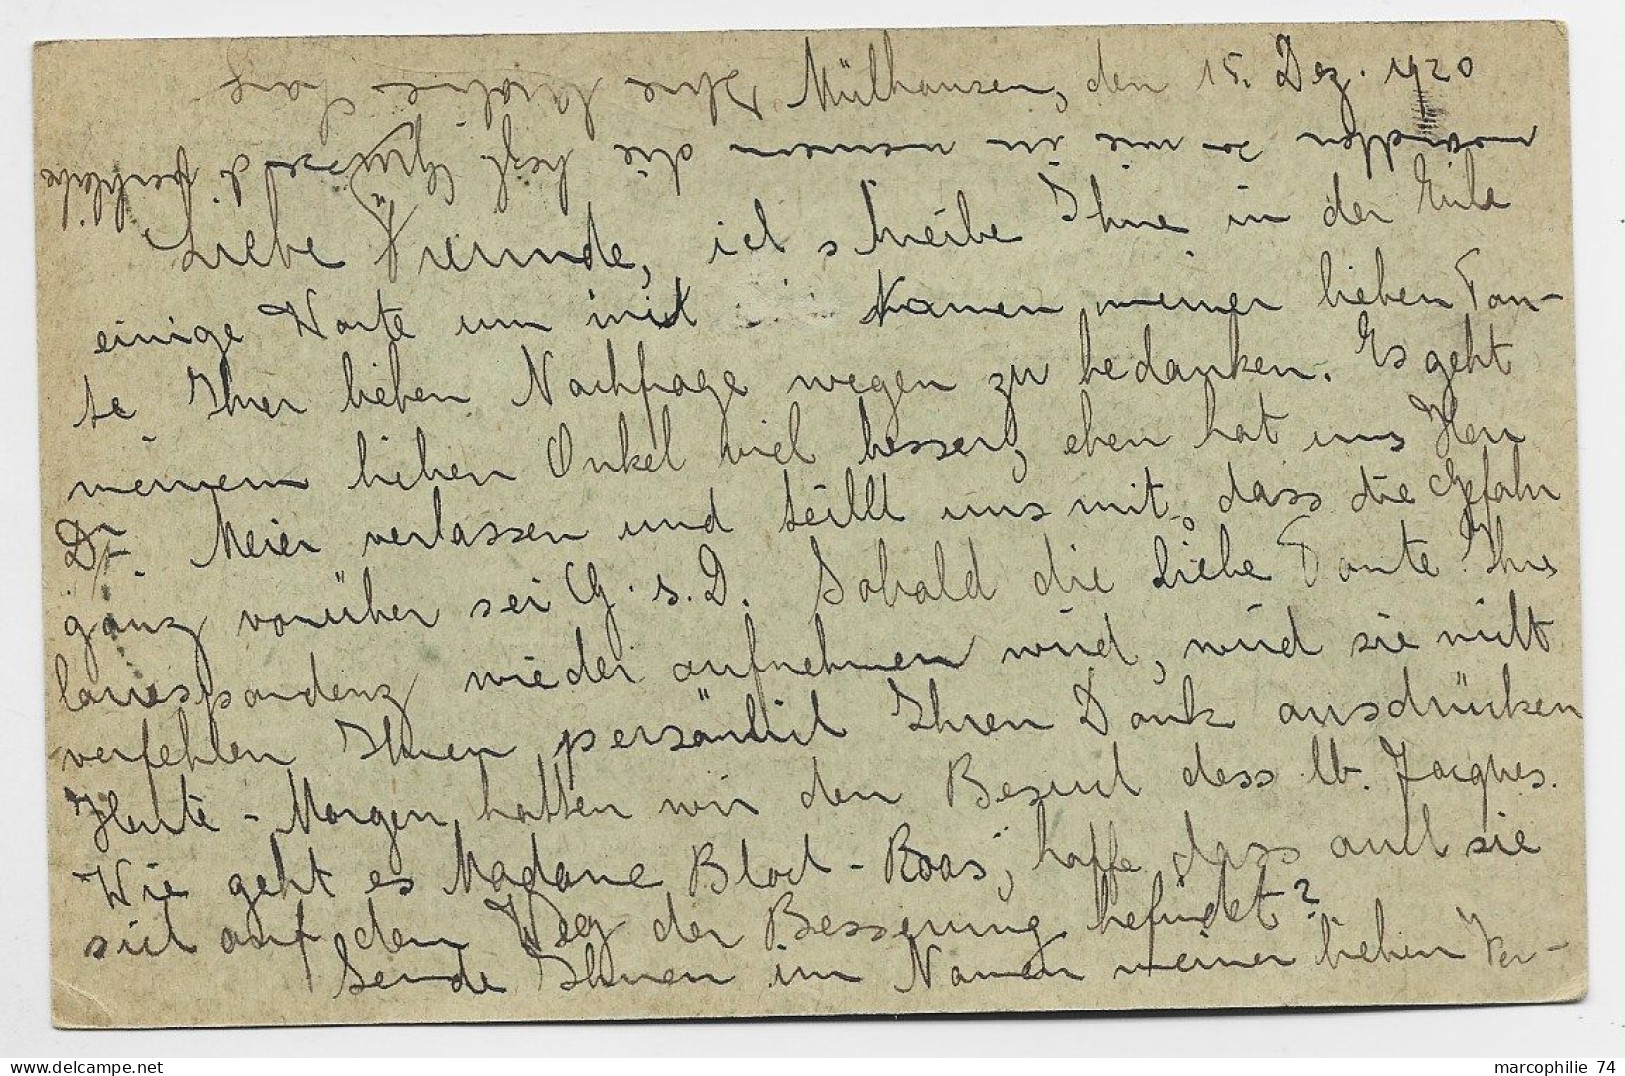 Mülhausen, den 15. Dez. 1920
Liebe Freunde, ich schreibe Ihne in der Eile
einige Worte um mich Namen meiner lieben Tan-
te Ihrer lieben Nachfrage wegen zu bedanken. Es geht
meinem lieben Onkel viel besser, eben hat uns Herr
Dr. Meier verlassen und teillt uns mit, dass die Gefahr
ganz vorüber sei G. s. D. Sobald die liebe Tante Ihre
Correspondenz wieder aufnehmen wird, wird sie nicht
verfehlen Ihnen persönlich Ihren Dank ausdrücken
Heute-Morgen hatten wir den Besuch dess lb. Jacques.
Wie geht es Madame Bloch-Boas, hoffe, dass auch sie
sich auf dem Weg der Besserung befindet?
Sende Ihnen im Namen meiner lieben Ver-
wandten so wie in meinem die herzl Grüsse d.
Ihre Caroline
marcophilie 74